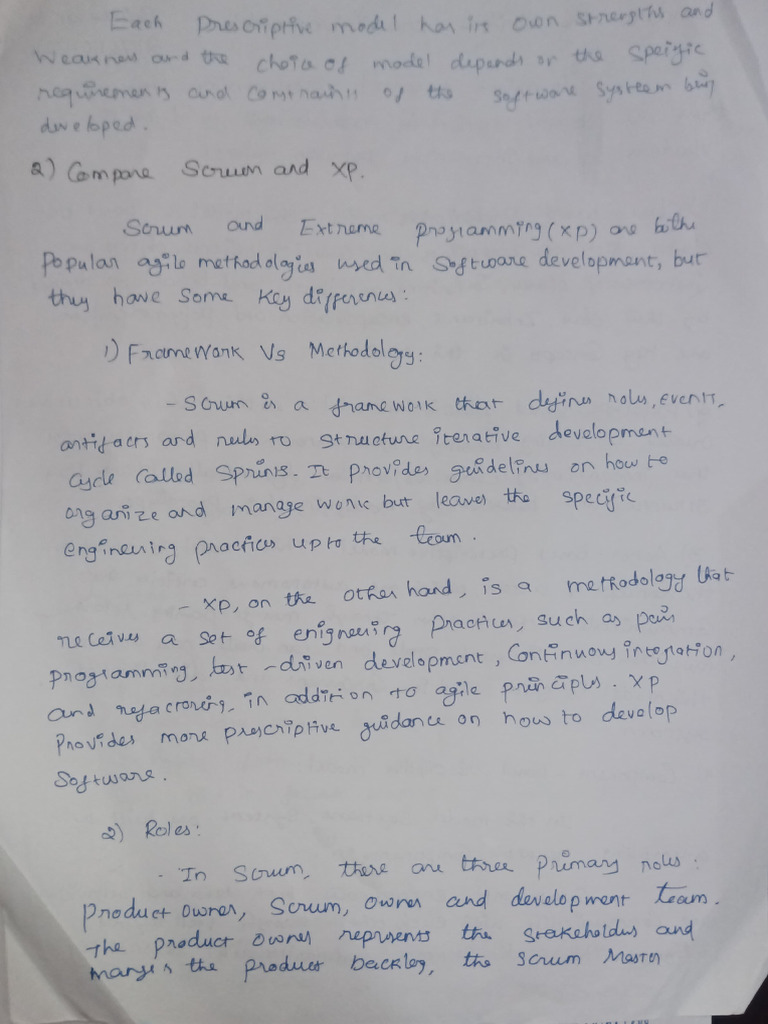 Each Prescriptive model has its own strengths and
Weakness and the choice of model depends on the Specific
requirements and constraints of the software system being
developed.
2) Compare Scrum and XP.
Scrum and Extreme Programming (XP) are both
Popular agile methodologies used in Software development, but
they have some key differences:
1) Framework Vs Methodology:
- Scrum is a framework that defines roles, events,
artifacts and rules to structure iterative development
cycle called Sprints. It provides guidelines on how to
organize and manage work but leaves the specific
engineering practices upto the team.
- XP, on the other hand, is a methodology that
receives a set of enigneering Practices, such as pair
programming, test-driven development, Continuous integration,
and refactoring, in addition to agile principles. XP
Provides more prescriptive guidance on how to develop
Software.
2) Roles:
- In Scrum, there are three Primary roles:
Product owner, Scrum, owner and development team.
The product owner represents the stakeholders and
the product backlog, the Scrum Master